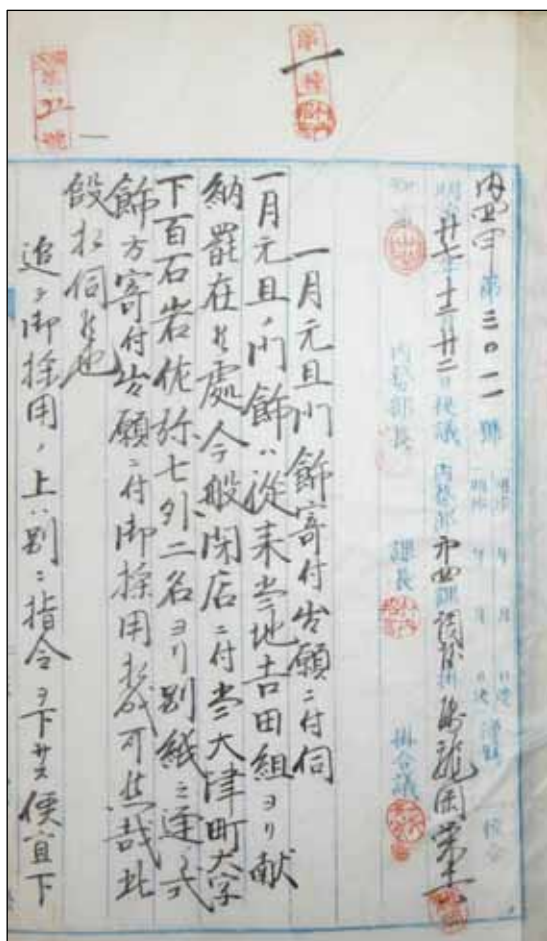 第一種
第22號
内四甲 第三〇一一號
明治廿七年十二月廿二日後議 内務部第四課調査掛
明治 年 月 日決
明治 年 月 日
知事
内務部長
課長
掛合議
一月元旦門飾寄付出願ニ付伺
一月元旦ノ門飾ハ従来当地吉田組ヨリ献
納罷在候處今般閉店ニ付当大津町大字
下百石岩佐弥七外二名ヨリ別紙之通門
飾方寄付出願ニ付御採用相成可然哉此
段相伺候也
追テ御採用ノ上ハ別ニ指令ヲ下サス便宜下